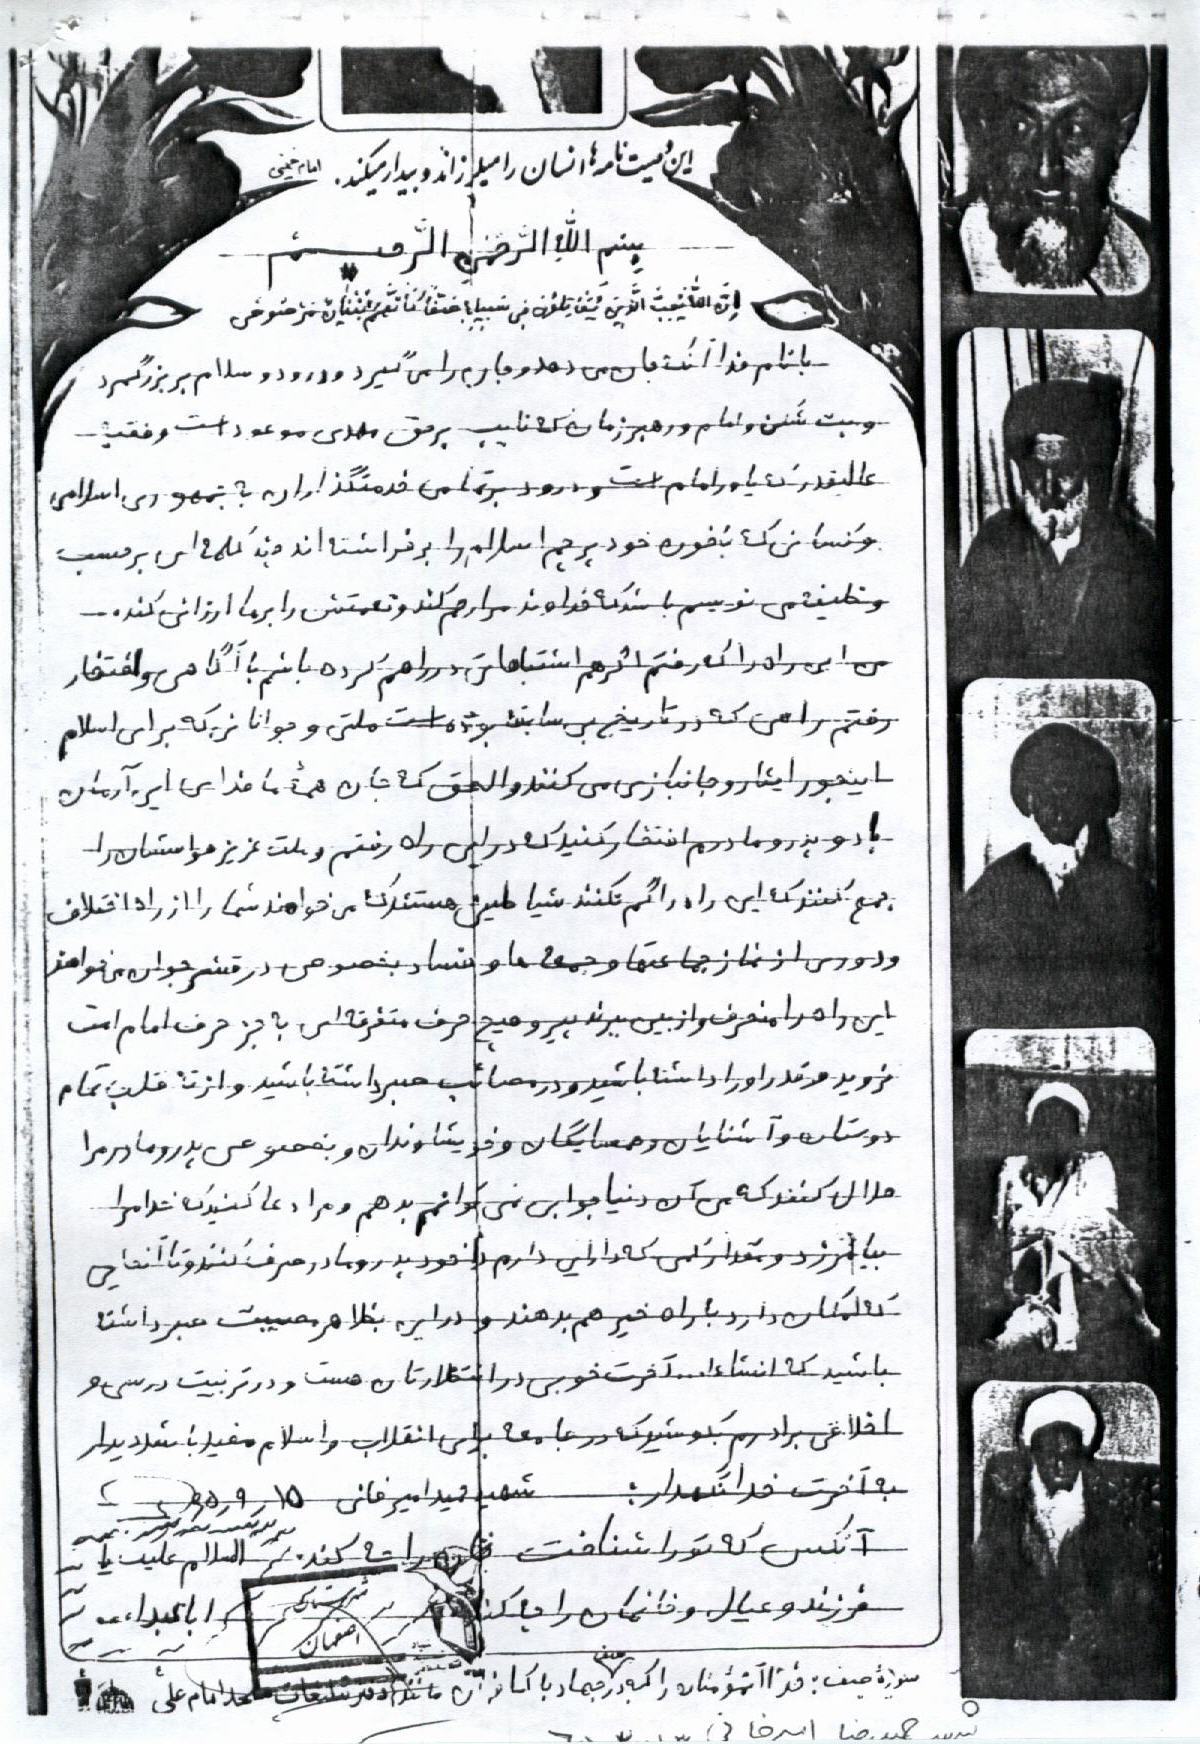 این وصیت نامه ها انسان را میلرزاند و بیدار میکند. امام خمینی
بسم اللّه الرّحمن الرّحیم
ان اللّه یحب الذین یقاتلون فی سبیله صفاً کانهم بنیان مرصوص
بنام خدا آنکه جان می دهد و جان را می گیرد و درود و سلام بر بزرگمرد
و بت شکن و امام و رهبر زمان که نایب بر حق مهدی موعود است و فقیه
عالیقدر که یاور امام است و درود بر تمامی خدمتگذاران به جمهوری اسلامی
و کسانی که با خون خود پرچم اسلام را برافراشته اند چند کلمه ای بر حسب
وظیفه می نویسم باشد که خداوند مرا رحم کند و نعمتش را بر ما ارزانی کند
من این راه را که رفتم اگر هم اشتباهاتی در راهم کرده باشم با آگاهی و افتخار
رفتم راهی که در تاریخ بی سابقه بوده است ملتی و جوانانی که برای اسلام
اینجور ایثار و جانبازی می کنند والحق که جان همهٔ ما فدای این آرمان
باد و پدر و مادرم افتخار کنید که در این راه رفتم و ملت عزیز حواستان را
جمع کنند که این راه را گم نکنند شیاطینی هستند که می خواهند شما را از راه اختلاف
و دوری از نماز جماعتها و جمعه ها و فساد بخصوص در قشر جوان می خواهند
این راه را منحرف و از بین ببرند پیرو هیچ حرف متفرقه ای به جز حرف امام امت
نروید و قدر او را داشته باشید و در مصائب صبر داشته باشید و از ته قلب تمام
دوستان و آشنایان و همسایگان و خویشاوندان و بخصوص پدر و مادر مرا
حلال کنند که من آن دنیا جوابی نمی توانم بدهم و مرا دعا کنید که خدا مرا
بیامرزد و مقدار کمی که دارایی دارم خود پدر و مادر صرف کنند و تا آنجایی
که امکان دارد به راه خیر هم بدهند و در این بظاهر مصیبت صبر داشته
باشید که انشاءا... آخرت خوبی در انتظارتان هست و در تربیت درسی و
اخلاقی برادرم بکوشید که در جامعه برای انقلاب و اسلام مفید باشد دیدار
به آخرت خدانگهدار: شهید حمید امیرخانی
آنکس که تو را شناخت جان را چه کند السلام علیک یا
فرزند و عیال و خانمان را چه کند اباعبدا...
شهرستان
اصفهان
سورهٔ صف: خدا آن مؤمنان را که در جهاد با کافران مانند دفتر تبلیغات مسجد امام علی
شهید حمیدرضا امیرخانی